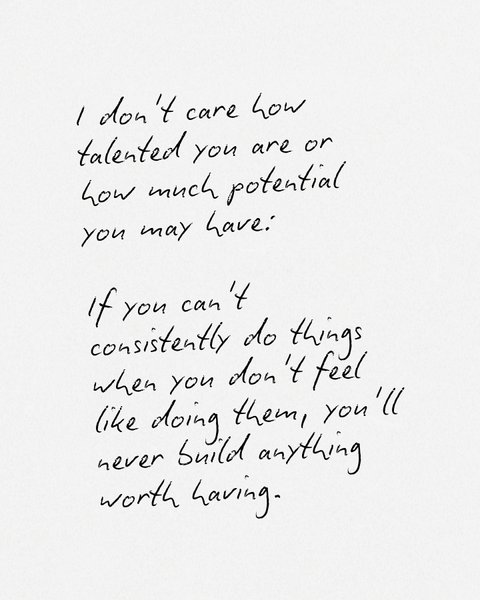 I don't care how
talented you are or
how much potential
you may have:
If you can't
consistently do things
when you don't feel
like doing them, you'll
never build anything
worth having.